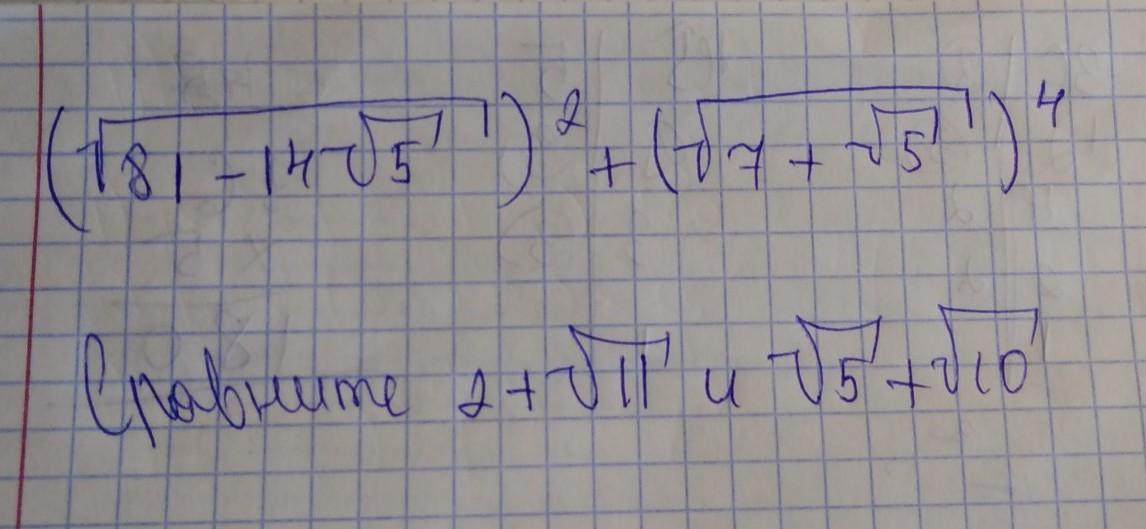 (√(81 - 14√5))² + (√(7 + √5))⁴
Сравните 2 + √11 и √5 + √10